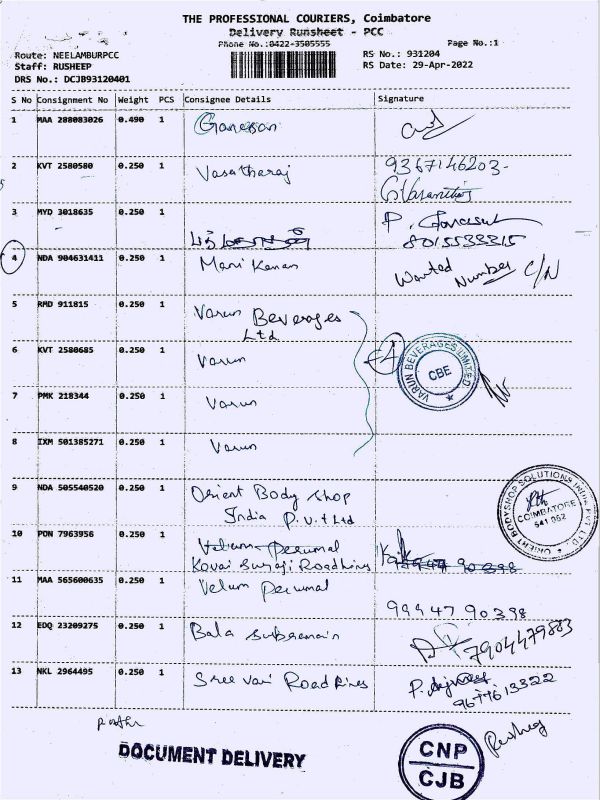 THE PROFESSIONAL COURIERS, Coimbatore
Delivery Runsheet - PCC
Phone No.:0422-3505555
Page No.:1
Route: NEELAMBURPCC
RS No.: 931204
Staff: RUSHEEP
RS Date: 29-Apr-2022
DRS No.: DCJB93120401
S No Consignment No Weight PCS Consignee Details Signature
1 MAA 288083026 0.490 1 Ganesan
2 KVT 2580580 0.250 1 Vasatharaj 9367146203
3 MYD 3018635 0.250 1 P. 8015533315
4 NDA 904631411 0.250 1 Mani Kanan Wanted Number C/N
5 RMD 911815 0.250 1 Varun Beverages Ltd
6 KVT 2580685 0.250 1 Varun
4
VARUN BEVERAGES LIMITED
CBE
7 PMK 218344 0.250 1 Varun
8 IXM 501385271 0.250 1 Varun
9 NDA 505540520 0.250 1 Orient Body Shop
India P.v.t Ltd
ORIENT BODYSHOP SOLUTIONS INDIA PVT LTD
COIMBATORE
641 062
10 PON 7963956 0.250 1 Velum Perumal
Kovai Roadlines 99947 90398
11 MAA 565600635 0.250 1 Velum Perumal
99947 90398
12 EDQ 23209275 0.250 1 Bala Subramain 7904479883
13 NKL 2964495 0.250 1 Sree vari Roadlines P. 9677613322
DOCUMENT DELIVERY
CNP
CJB